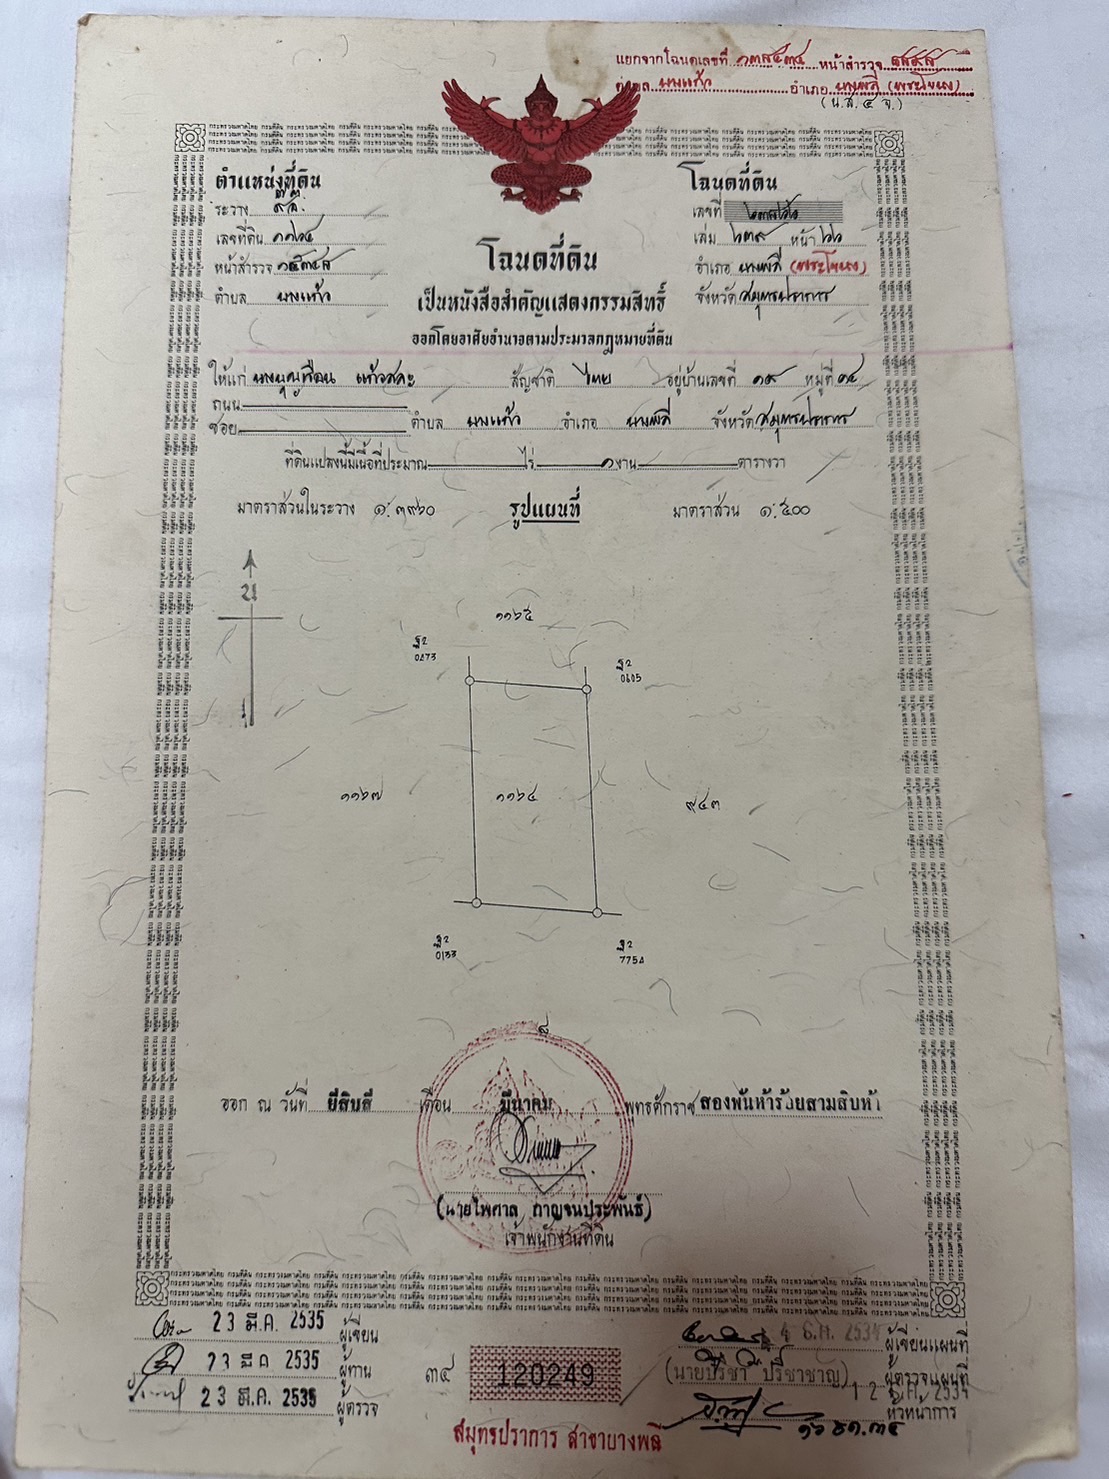 แยกจากโฉนดเลขที่ หน้าสำรวจ
ตำบล บางแก้ว อำเภอ บางพลี (พระโขนง)
(น.ส.๔ จ.)
ตำแหน่งที่ดิน
ระวาง
เลขที่ดิน ๑๑๖๔
หน้าสำรวจ
ตำบล บางแก้ว
โฉนดที่ดิน
เลขที่
เล่ม หน้า ๖๖
อำเภอ บางพลี (พระโขนง)
จังหวัด สมุทรปราการ
โฉนดที่ดิน
เป็นหนังสือสำคัญแสดงกรรมสิทธิ์
ออกโดยอาศัยอำนาจตามประมวลกฎหมายที่ดิน
ให้แก่ นางบุญเรือน สัญชาติ ไทย อยู่บ้านเลขที่ ๑๙ หมู่ที่ ๑๔
ถนน
ซอย ตำบล บางแก้ว อำเภอ บางพลี จังหวัด สมุทรปราการ
ที่ดินแปลงนี้มีเนื้อที่ประมาณ ไร่ ๑ งาน ตารางวา
มาตราส่วนในระวาง ๑:๓๙๖๐ รูปแผนที่ มาตราส่วน ๑:๕๐๐
น
๑๑๖๕
ฐ2
ฐ2
0605
๑๑๖๗ ๑๑๖๔ ๙๔๓
ฐ2
0133
ฐ2
ออก ณ วันที่ ยี่สิบสี่ เดือน มีนาคม พุทธศักราช สองพันห้าร้อยสามสิบห้า
(นายไพศาล กาญจนประพันธ์)
เจ้าพนักงานที่ดิน
23 มี.ค. 2535 ผู้เขียน
23 มี.ค. 2535 ผู้ทาน
23 มี.ค. 2535 ผู้ตรวจ
๓๔ 120249
สมุทรปราการ สาขาบางพลี
ผู้เขียนแผนที่
(นายปรีชา ปรีชาชาญ) ผู้ตรวจแผนที่
หัวหน้าการ